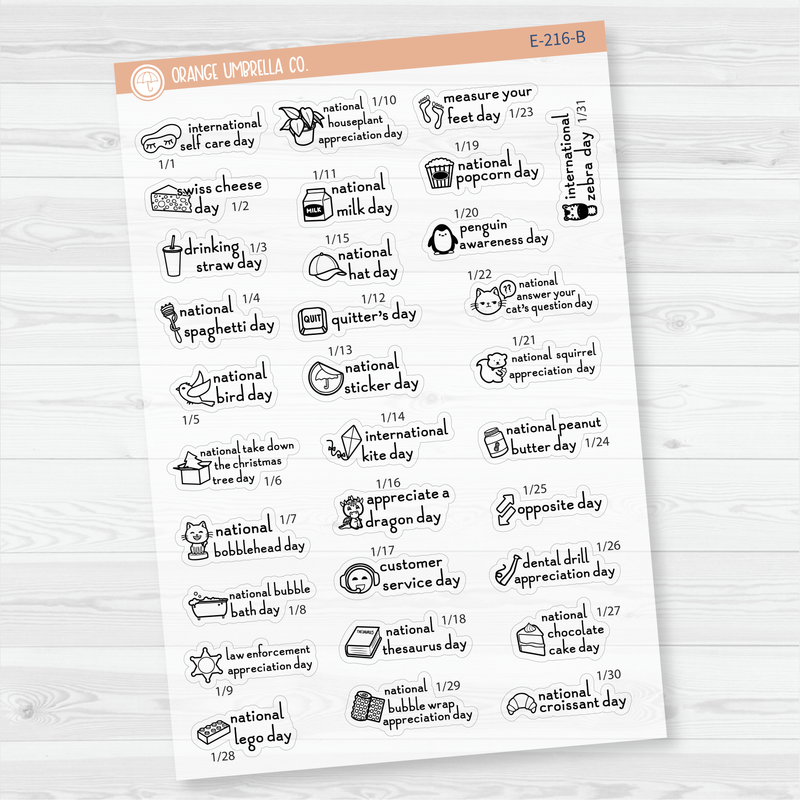 ORANGE UMBRELLA CO.
E-216-B
international
self care day
1/1
swiss cheese
day 1/2
drinking 1/3
straw day
national 1/4
spaghetti day
national
bird day
1/5
national take down
the christmas
tree day 1/6
national 1/7
bobblehead day
national bubble
bath day 1/8
law enforcement
appreciation day
1/9
national
lego day
1/28
national 1/10
houseplant
appreciation day
1/11
national
milk day
MILK
1/15
national
hat day
1/12
quitter's day
QUIT
1/13
national
sticker day
1/14
international
kite day
1/16
appreciate a
dragon day
1/17
customer
service day
national 1/18
thesaurus day
THESAURUS
national 1/29
bubble wrap
appreciation day
measure your
feet day 1/23
1/19
national
popcorn day
1/20
penguin
awareness day
1/22
??
national
answer your
cat's question day
1/21
national squirrel
appreciation day
national peanut
butter day 1/24
1/25
opposite day
1/26
dental drill
appreciation day
national 1/27
chocolate
cake day
1/30
national
croissant day
international 1/31
zebra day